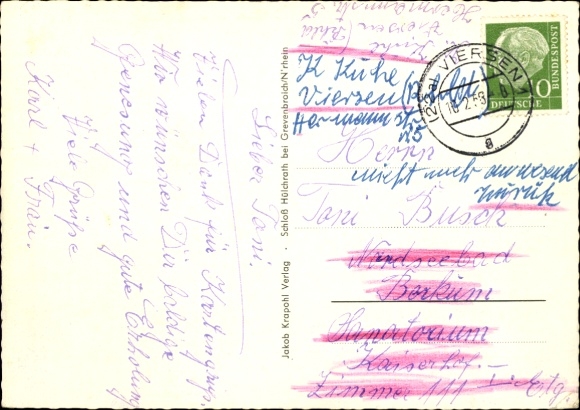 Lieber Toni.
Vielen Dank für Kartengruß.
Wir wünschen Dir baldige
Genesung und gute Erholung
Viele Grüße
Karl + Frau.
Jakob Krapohl Verlag · Schloß Hülchrath bei Grevenbroich/N'rhein
Viersen (Rhld
K Kühe
Viersen (Rhld
Hermann str
25
Herrn
nicht mehr anwesend
zurück
Toni Busch
Nordseebad
Borkum
Sanatorium
Kaiserhof
Zimmer 111 I. Etg.
VIERSEN
a
DEUTSCHE
BUNDESPOST
10